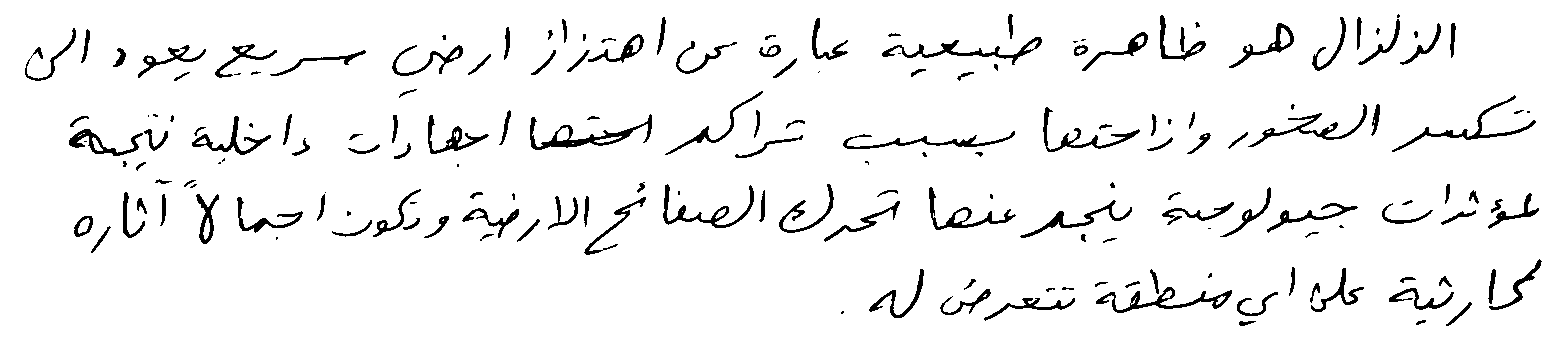 الزلزال هو ظاهرة طبيعية عبارة عن اهتزاز ارضي سريع يعود الى
تكسر الصخور وازاحتها بسبب تراكم اجهادات داخلية نتيجة
لمؤثرات جيولوجية ينجم عنها تحرك الصفائح الارضية وتكون اجمالاً آثاره
كارثية على اي منطقة تتعرض له .